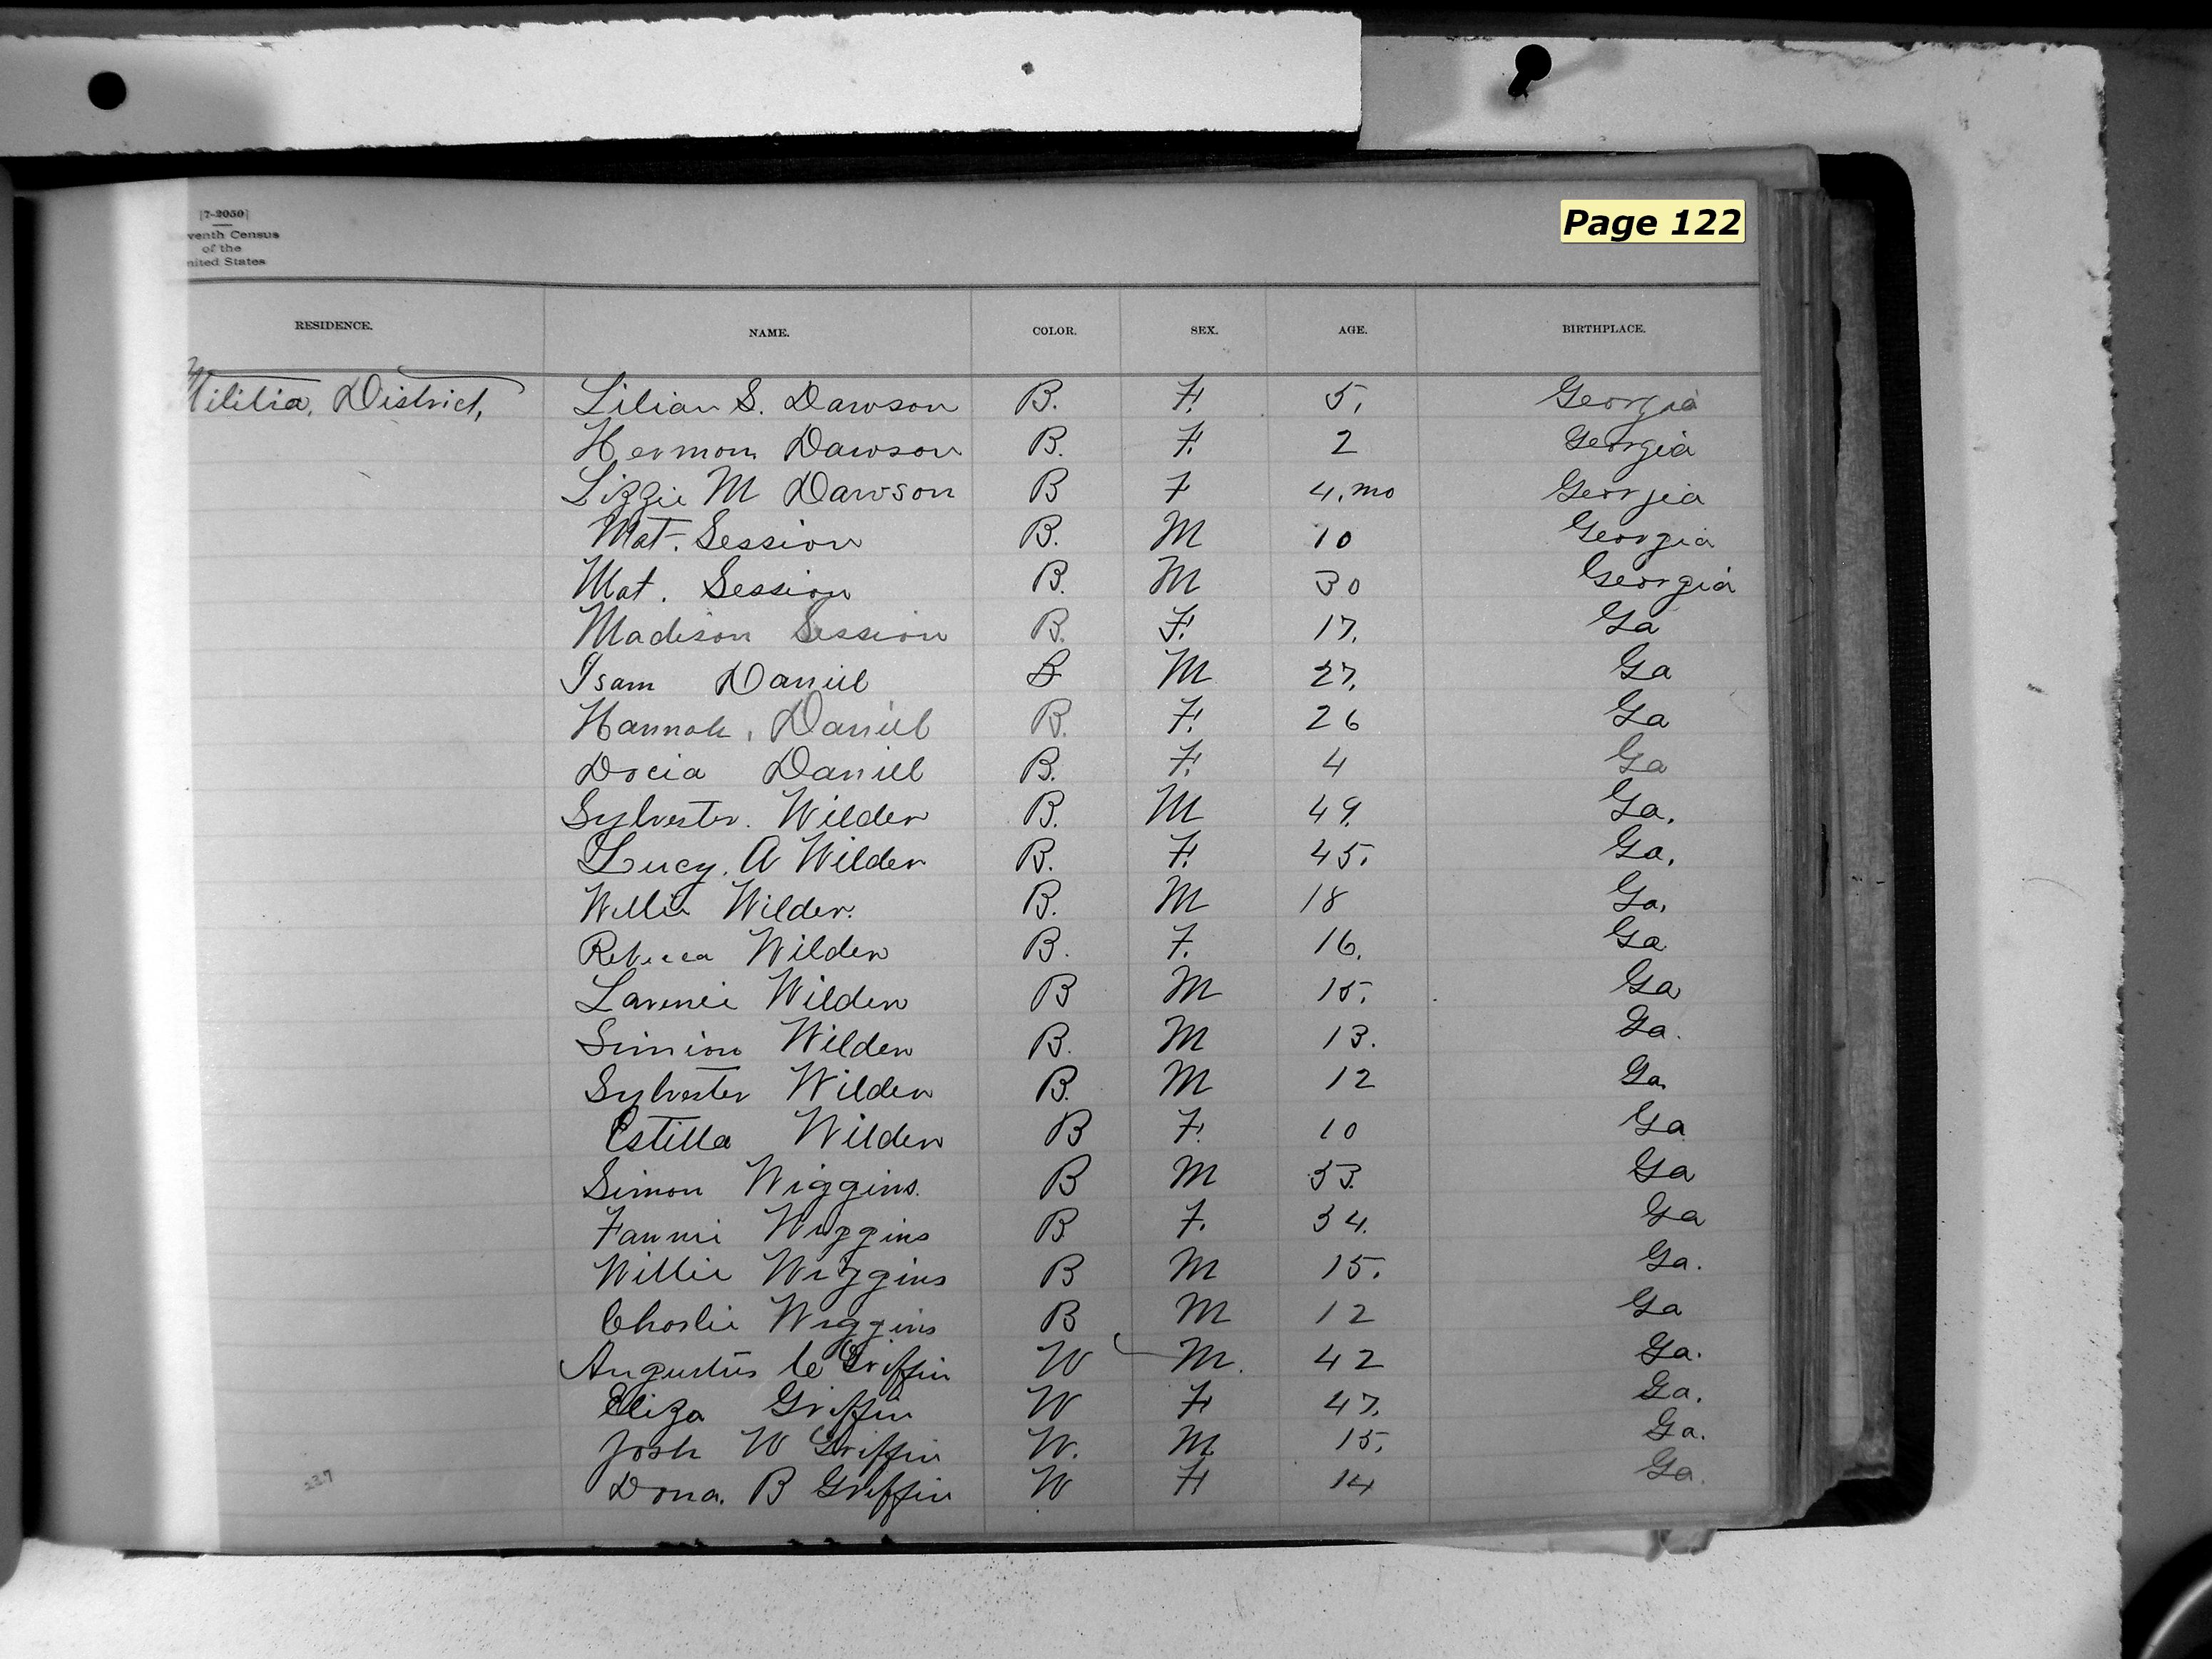 [7-2050]
venth Census
of the
nited States
Page 122
RESIDENCE. NAME. COLOR. SEX. AGE. BIRTHPLACE.
Militia, District, Lilian S. Dawson B. F. 5, Georgia
Hermon Dawson B. F. 2 Georgia
Lizzie M Dawson B F 4, mo Georgia
Mat. Session B. M 10 Georgia
Mat. Session B. M 30 Georgia
Madison Session B. F. 17, Ga
Isam Daniel B M 27, Ga
Hannah, Daniel B. F. 26 Ga
Docia Daniel B. F. 4 Ga
Sylvester. Wilder B. M 49. Ga.
Lucy. A Wilder B. F. 45, Ga.
Willie Wilder. B. M 18 Ga.
Rebecca Wilder B. F. 16. Ga
Wilder B M 15. Ga
Simion Wilder B. M 13. Ga.
Sylvester Wilder B. M 12 Ga.
Estilla Wilder B F. 10 Ga
Simon Wiggins. B M 33. Ga
Fannie Wiggins B F. 34. Ga
Willie Wiggins B M 15. Ga.
Charlie Wiggins B M 12 Ga
Augustus C Griffin W M. 42 Ga.
Eliza Griffin W F 47. Ga.
Josh W Griffin W. M 15, Ga.
237 Dona. B Griffin W F 14 Ga.